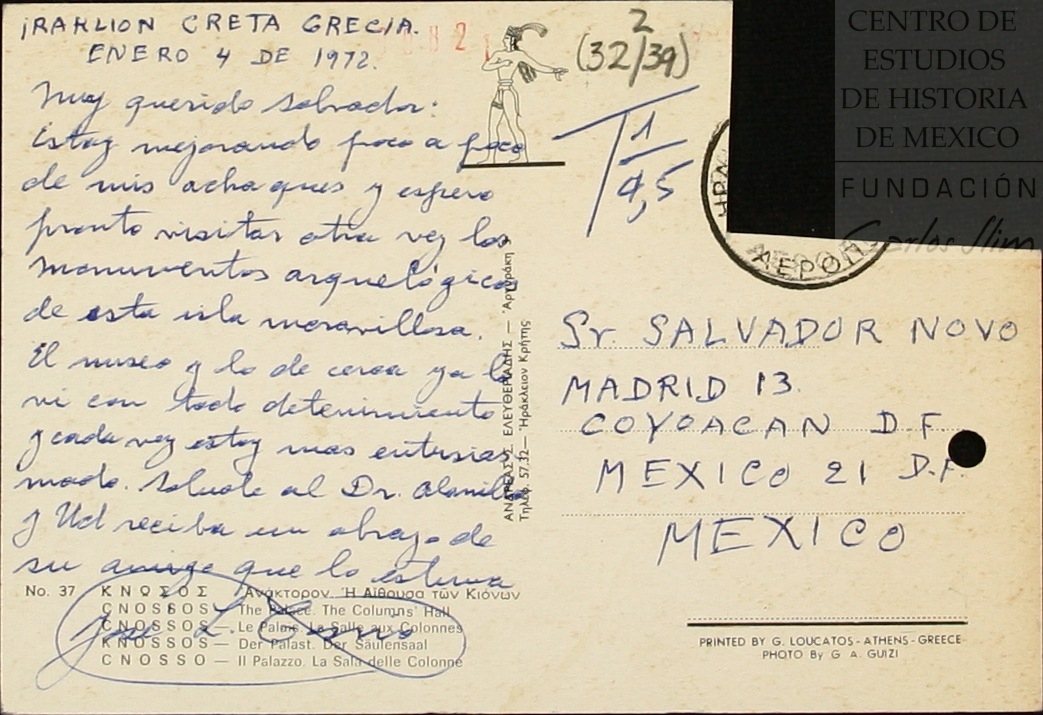 IRAKLION CRETA GRECIA.
ENERO 4 DE 1972.
Muy querido Salvador:
Estoy mejorando poco a poco
de mis achaques y espero
pronto visitar otra vez los
monumentos arquelógicos
de esta isla maravillosa.
El museo y lo de cerca ya lo
vi con todo detenimiento
y cada vez estoy mas entusias
mado. Salude al Dr.
y Ud reciba un abrazo de
su amigo que lo estima
José L.
No. 37 ΚΝΩΣΟΣ Ἀνάκτορον. Ἡ Αἴθουσα τῶν Κιόνων
CNOSSOS — The Palace. The Columns' Hall
CNOSSOS — Le Palais. La Salle aux Colonnes
KNOSSOS — Der Palast. Der Säulensaal
CNOSSO — Il Palazzo. La Sala delle Colonne
ΑΝΔΡΕΑΣ Σ. ΕΛΕΥΘΕΡΙΑΔΗΣ — Ἀργυράκη
Τηλέφ. 57.32 — Ἡράκλειον Κρήτης
2
(32/39)
T 1/4,5
ΑΕΡΟΠ
CENTRO DE
ESTUDIOS
DE HISTORIA
DE MEXICO
FUNDACIÓN
Carlos Slim
Sr. SALVADOR NOVO
MADRID 13.
COYOACAN D.F.
MEXICO 21 D.F.
MEXICO
PRINTED BY G. LOUCATOS - ATHENS - GREECE
PHOTO By G. A. GUIZI